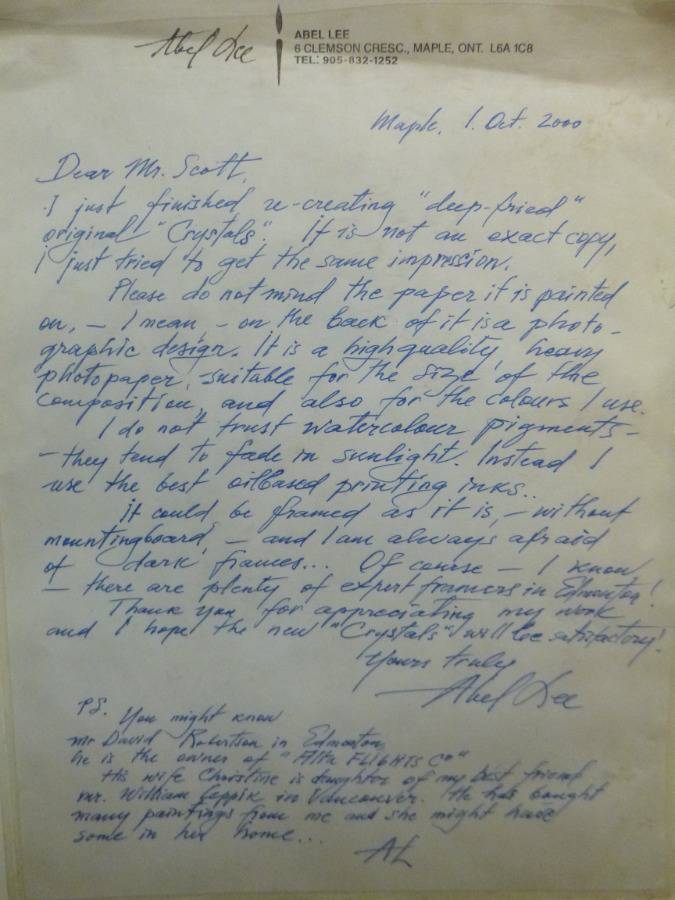 Abel Lee
ABEL LEE
6 CLEMSON CRESC., MAPLE, ONT. L6A 1C8
TEL: 905-832-1252
Maple, 1. Oct. 2000
Dear Mr. Scott,
I just finished re-creating "deep-fried"
original "Crystals". It is not an exact copy,
I just tried to get the same impression.
Please do not mind the paper it is painted
on, – I mean, – on the back of it is a photo-
graphic design. It is a high quality, heavy
photopaper, suitable for the size of the
composition, and also for the colours I use.
I do not trust watercolour pigments –
– they tend to fade in sunlight. Instead I
use the best oilbased printing inks..
It could be framed as it is, – without
mountingboard, – and I am always afraid
of dark frames... Of course – I know
– there are plenty of expert framers in Edmonton!
Thank you for appreciating my work
and I hope the new "Crystals" will be satisfactory!
Yours truly
Abel Lee
PS. You might know
Mr David Robertson in Edmonton,
he is the owner of "Alta FLIGHTS Co"
His wife Christine is daughter of my best friend
mr. William Leppik in Vancouver. He has bought
many paintings from me and she might have
some in her home...
AL